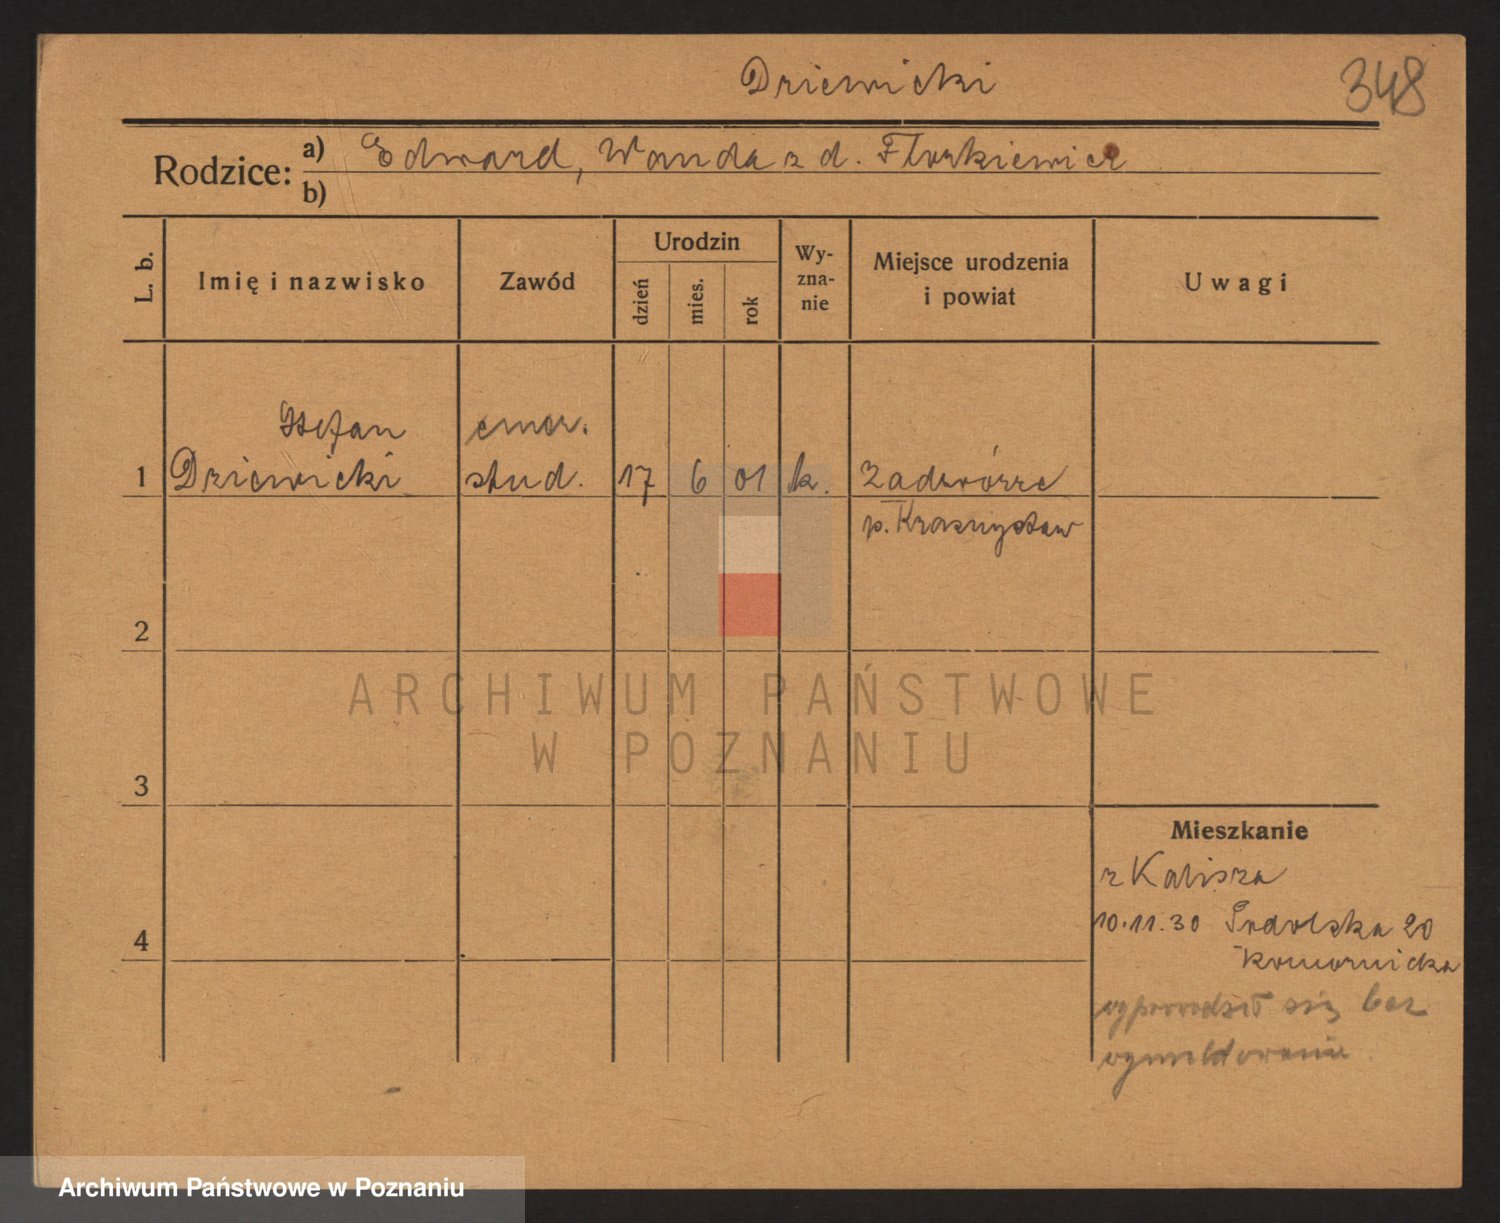 Dziewicki
348
Rodzice: a) Edward, Wanda z d. Florkiewicz
b)
L. b.
Imię i nazwisko
Zawód
Urodzin
dzień
mies.
rok
Wy-
zna-
nie
Miejsce urodzenia
i powiat
Uwagi
Stefan
emer.
1 Dziewicki stud. 17 6 01 k. Zadwórze
p. Krasnystaw
2
ARCHIWUM PAŃSTWOWE
W POZNANIU
3
Mieszkanie
z Kalisza
10.11.30 Podolska 20
4
Komornicka
wyprowadził się bez
wymeldowania
Archiwum Państwowe w Poznaniu